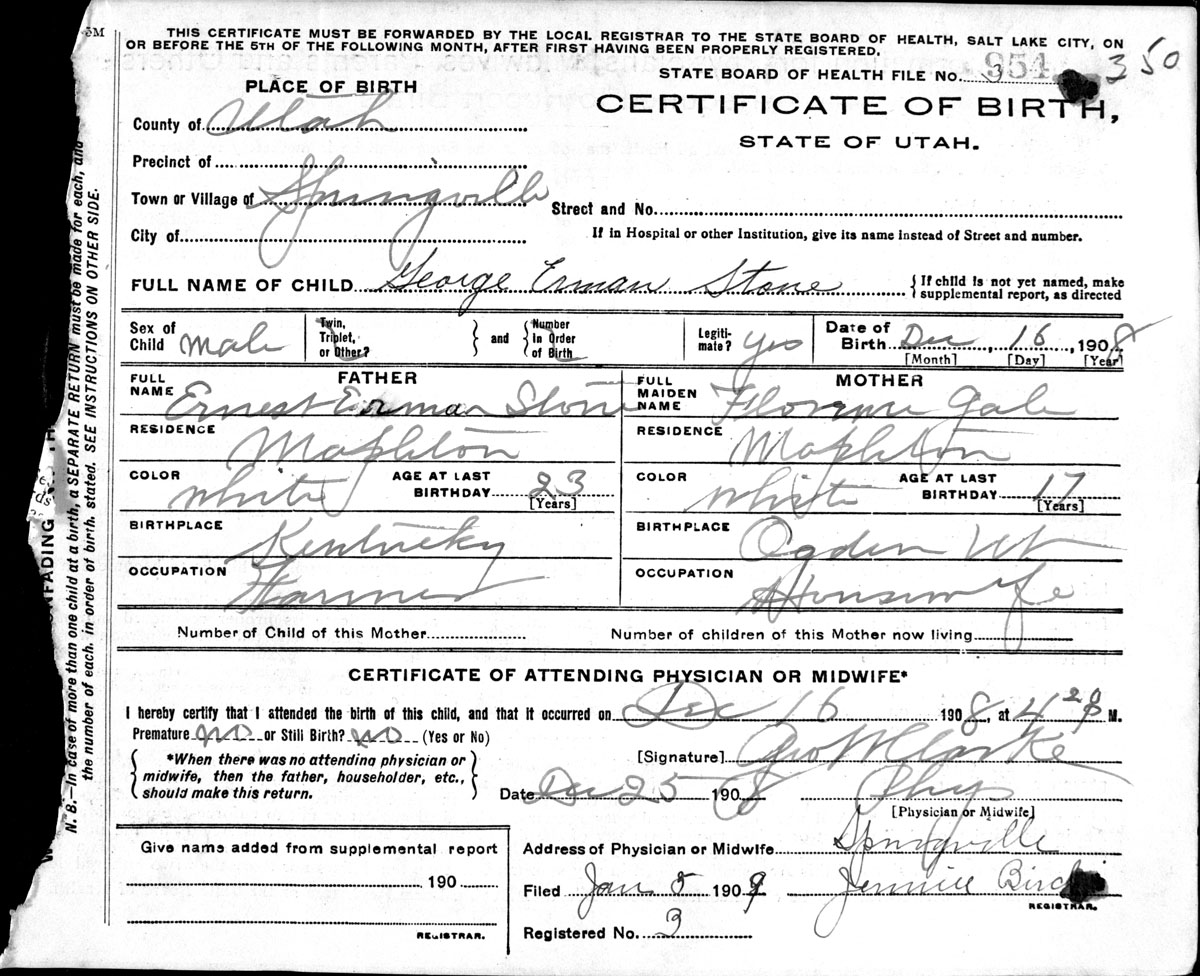 3M
THIS CERTIFICATE MUST BE FORWARDED BY THE LOCAL REGISTRAR TO THE STATE BOARD OF HEALTH, SALT LAKE CITY, ON
OR BEFORE THE 5TH OF THE FOLLOWING MONTH, AFTER FIRST HAVING BEEN PROPERLY REGISTERED.
STATE BOARD OF HEALTH FILE No. 3 954 350
PLACE OF BIRTH
CERTIFICATE OF BIRTH,
STATE OF UTAH.
County of Utah
Precinct of
Town or Village of Springville
Street and No.
City of
If in Hospital or other Institution, give its name instead of Street and number.
FULL NAME OF CHILD George Erman Stone {If child is not yet named, make
supplemental report, as directed
Sex of Child Male
Twin, Triplet, or Other?
and
Number in Order of Birth
Legiti-mate? yes
Date of Birth Dec, 16, 1908
[Month] [Day] [Year]
FATHER
FULL NAME Ernest Erman Stone
RESIDENCE Mapleton
COLOR White AGE AT LAST BIRTHDAY 23
[Years]
BIRTHPLACE Kentucky
OCCUPATION Farmer
MOTHER
FULL MAIDEN NAME Florence Gale
RESIDENCE Mapleton
COLOR White AGE AT LAST BIRTHDAY 17
[Years]
BIRTHPLACE Ogden Ut
OCCUPATION Housewife
Number of Child of this Mother
Number of children of this Mother now living
CERTIFICATE OF ATTENDING PHYSICIAN OR MIDWIFE*
I hereby certify that I attended the birth of this child, and that it occurred on Dec 16 1908, at 4 M.
Premature no or Still Birth? no (Yes or No)
{*When there was no attending physician or
midwife, then the father, householder, etc.,
should make this return.}
[Signature] Geo W Clarke
Date Dec 25 1908 Phys
[Physician or Midwife]
Give name added from supplemental report
190
REGISTRAR.
Address of Physician or Midwife Springville
Filed Jan 5 1909
REGISTRAR.
Registered No. 3
N. B.—In case of more than one child at a birth, a SEPARATE RETURN must be made for each, and
the number of each, in order of birth, stated. SEE INSTRUCTIONS ON OTHER SIDE.